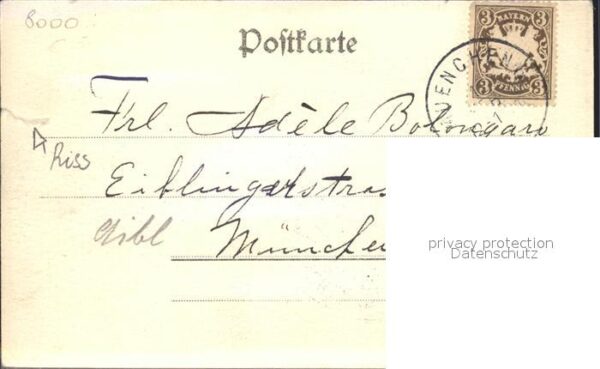 8000
Postkarte
3 BAYERN 3
3 PFENNIG 3
MUENCHEN
Frl. Adèle Bolongaro
Riss
Eiblingerstras
Aibl
München
privacy protection
Datenschutz